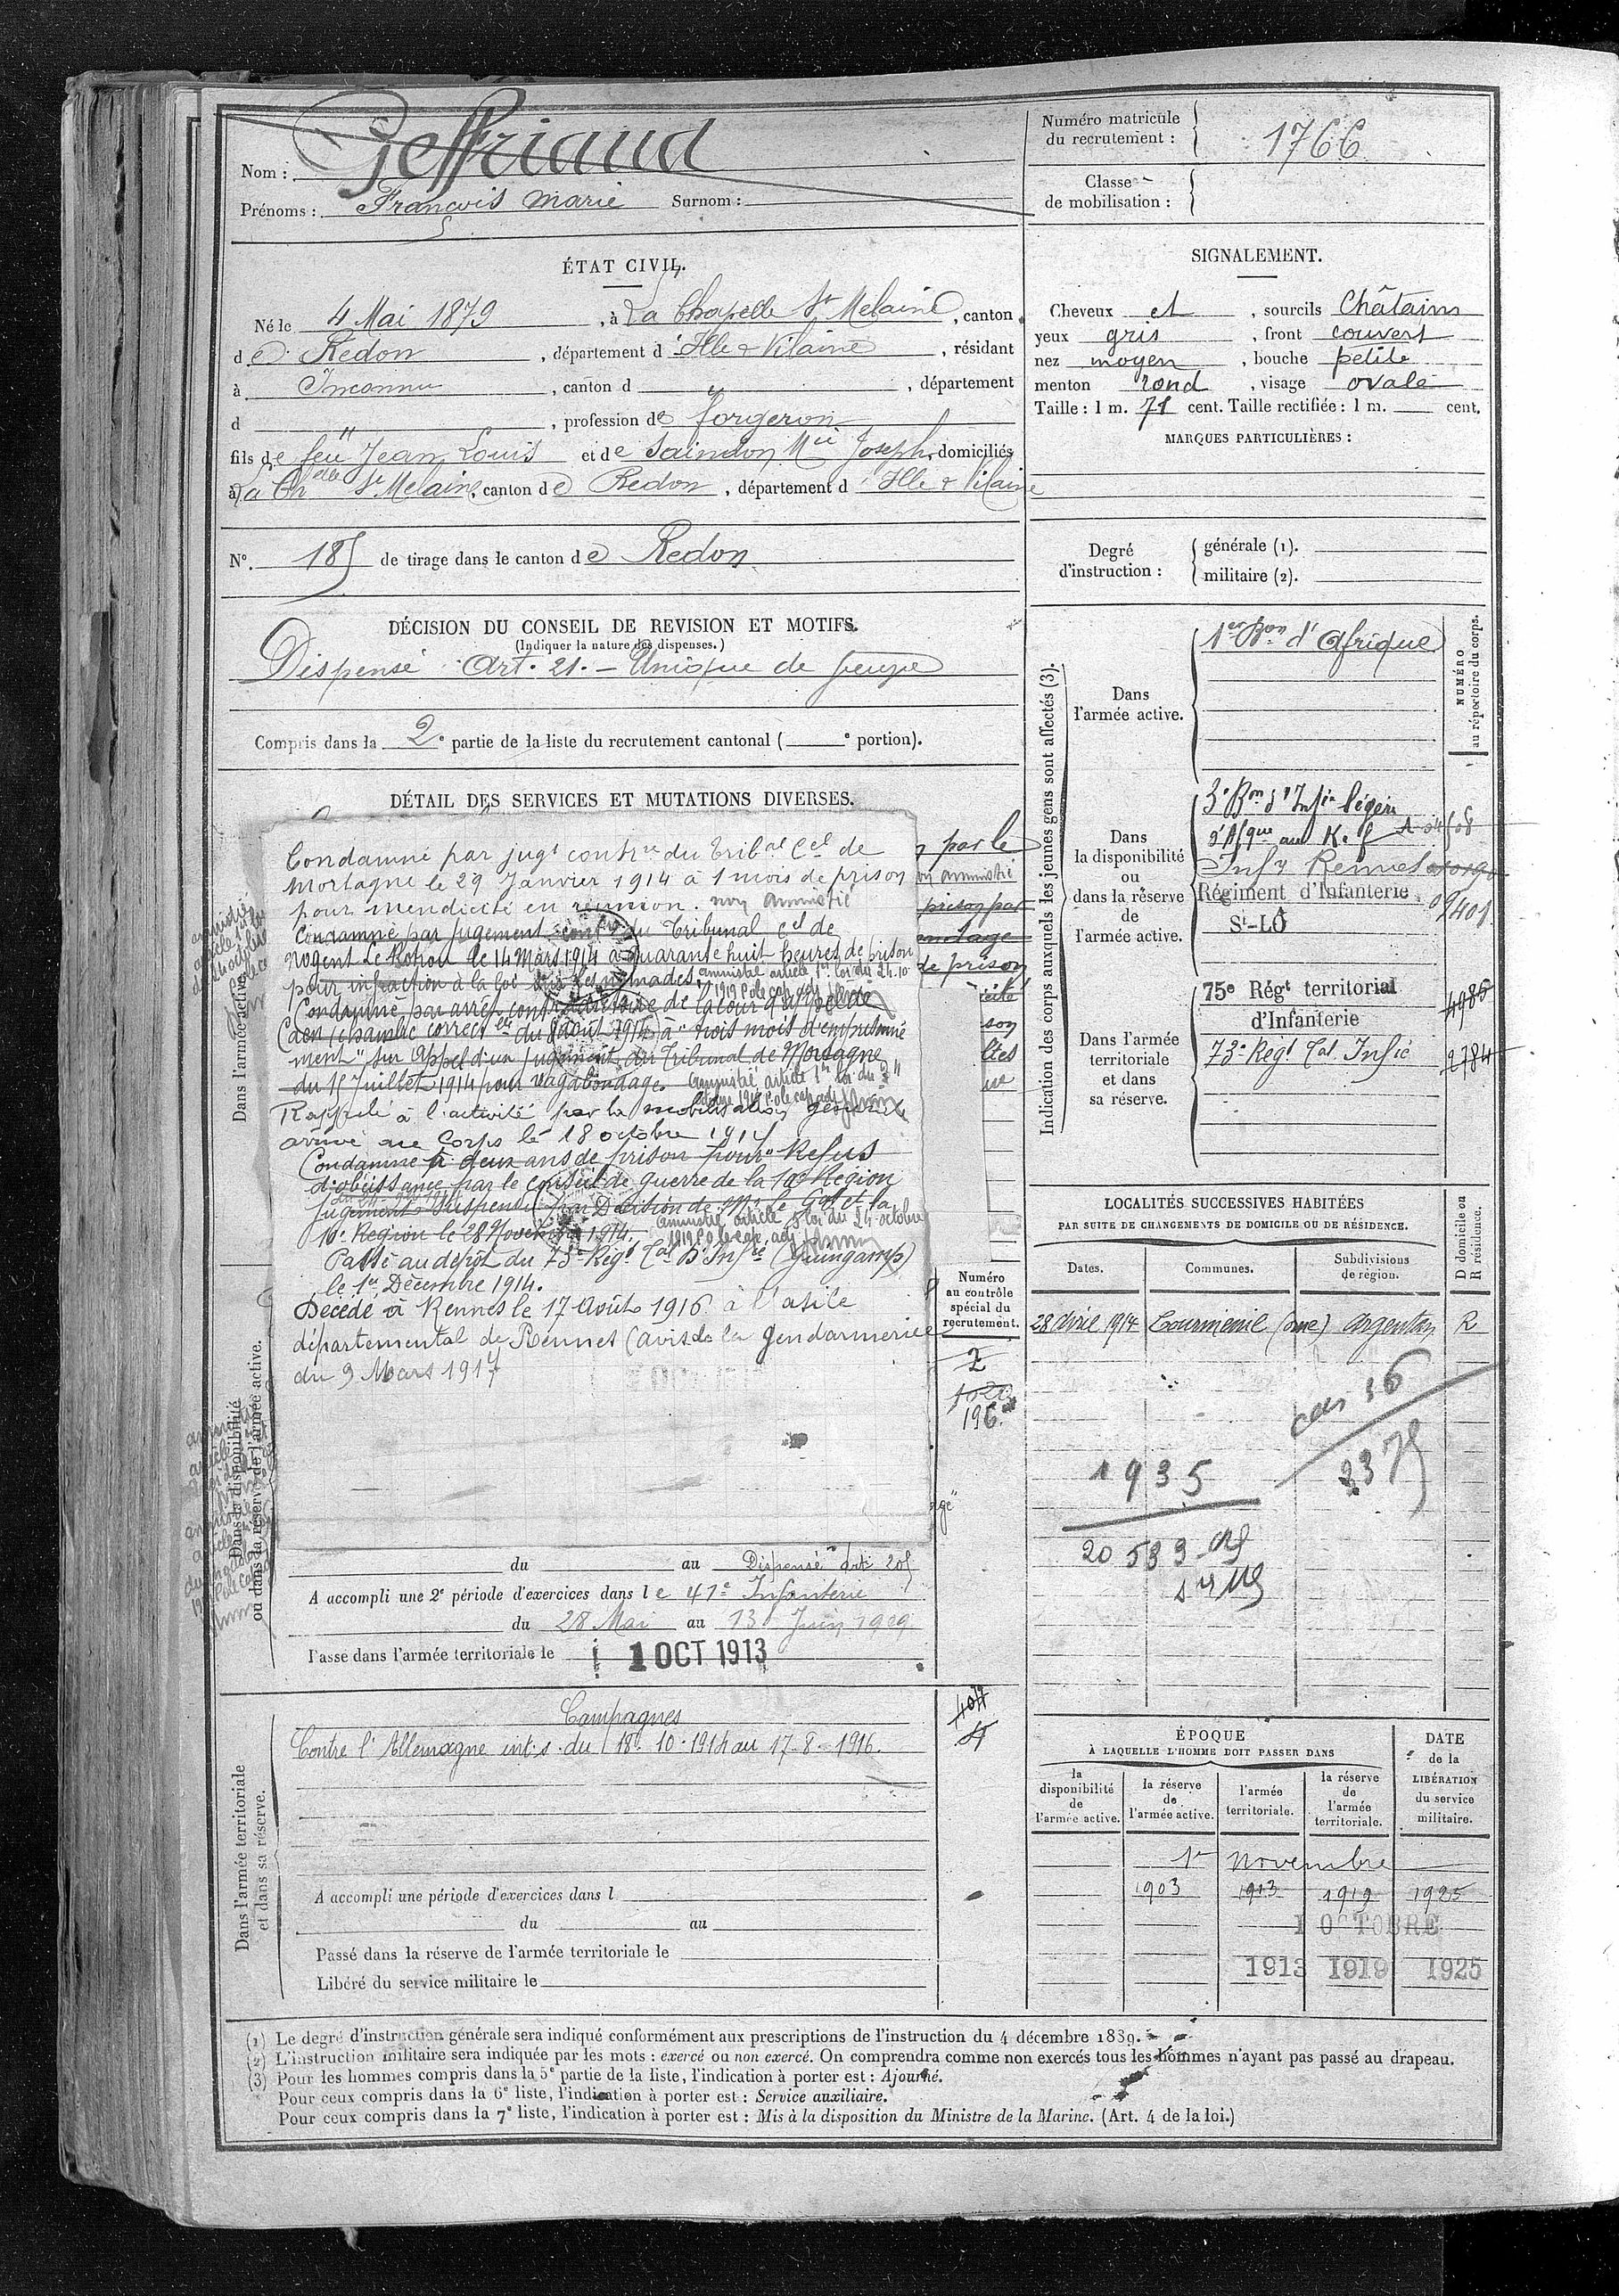 Nom : Geffriaud
Prénoms : François Marie Surnom :
Numéro matricule
du recrutement : 1766
Classe
de mobilisation :
ÉTAT CIVIL.
Né le 4 Mai 1879, à La Chapelle St Melaine, canton
de Redon, département d'Ille & Vilaine, résidant
à Inconnu, canton d ", département
d ", profession de forgeron
fils de feu Jean Louis et de Saindon Mie Joseph, domiciliés
à La Chelle St Melaine, canton de Redon, département d Ille & Vilaine
N°. 185 de tirage dans le canton de Redon
DÉCISION DU CONSEIL DE REVISION ET MOTIFS.
(Indiquer la nature des dispenses.)
Dispensé Art. 21. — Unique de
Compris dans la 2e partie de la liste du recrutement cantonal ( e portion).
DÉTAIL DES SERVICES ET MUTATIONS DIVERSES.
Condamné par jugt contre du Tribal Cel de
Mortagne le 29 Janvier 1914 à 1 mois de prison
pour mendicité en réunion. non amnistié
Condamné par jugement contre du Tribunal Cel de
Nogent Le Rotrou le 14 Mars 1914 à Quarante huit heures de prison
pour infraction à la loi sur les nomades. amnistié article 1er loi du 24.10
1919 P le cap. adj
Condamné par arrêt contradictoire de la cour d'appel de
Caen (chambre correctelle du août 1914) à "trois mois d'emprisonne
ment" sur appel d'un jugement du Tribunal de Mortagne
du 15 Juillet 1914 pour vagabondage. amnistié article 1er loi du 24
1919 P le cap adj
Rappelé à l'activité par la mobilisation générale
arrivé au Corps le 18 octobre 1914
Condamné à deux ans de prison pour "Refus
d'obéissance par le conseil de guerre de la 10e Région
Jugement suspendu par Décision de Mr le Gal Ct la
10e Région le 28 Novembre 1914. amnistié article 8 loi du 24 octobre
1919 P le cap. adj
Passé au dépôt du 73e Régt Cal D'Infie (Guingamp)
le 1er Décembre 1914.
Décédé à Rennes le 17 Août 1916 à l'asile
départemental de Rennes (avis de la Gendarmerie
du 9 Mars 1917
par le
non amnistié
prison par
de prison
du au Dispensé
A accompli une 2e période d'exercices dans le 41e Infanterie
du 28 Mai au 13 Juin 1909
Passé dans l'armée territoriale le 1 OCT 1913
Dans l'armée active.
Dans la disponibilité
ou dans la réserve de l'armée active.
Numéro
au contrôle
spécial du
recrutement.
2
196
Dans l'armée territoriale
et dans sa réserve.
Campagnes
Contre l'Allemagne int.s. du 18. 10. 1914 au 17. 8. 1916.
A accompli une période d'exercices dans l
du au
Passé dans la réserve de l'armée territoriale le
Libéré du service militaire le
SIGNALEMENT.
Cheveux et, sourcils Châtains
yeux gris, front couvert
nez moyen, bouche petite
menton rond, visage ovale
Taille : 1 m. 71 cent. Taille rectifiée : 1 m. cent.
MARQUES PARTICULIÈRES :
Degré
d'instruction :
générale (1).
militaire (2).
Indication des corps auxquels les jeunes gens sont affectés (3).
NUMÉRO
au répertoire du corps.
Dans
l'armée active.
1er Bon d'Afrique
Dans
la disponibilité
ou
dans la réserve
de
l'armée active.
3e Bon d'Infie légère
d'Afque au Kef
Infie Rennes
Régiment d'Infanterie 09401
St-LÔ
Dans l'armée
territoriale
et dans
sa réserve.
75e Régt territorial 4985
d'Infanterie
73e Régt Cal Infie 2784
LOCALITÉS SUCCESSIVES HABITÉES
PAR SUITE DE CHANGEMENTS DE DOMICILE OU DE RÉSIDENCE.
Dates. Communes. Subdivisions
de région.
D domicile ou
R résidence.
28 Avril 1914 Courmenil (Orne) Argentan R
cas 36
2375
1935
20 589
ÉPOQUE
À LAQUELLE L'HOMME DOIT PASSER DANS
la
disponibilité
de
l'armée active.
la réserve
de
l'armée active.
l'armée
territoriale.
la réserve
de
l'armée
territoriale.
DATE
de la
LIBÉRATION
du service
militaire.
1er Novembre
1903 1913 1919 1925
1 OCTOBRE
1913 1919 1925
(1) Le degré d'instruction générale sera indiqué conformément aux prescriptions de l'instruction du 4 décembre 1889.
(2) L'instruction militaire sera indiquée par les mots : exercé ou non exercé. On comprendra comme non exercés tous les hommes n'ayant pas passé au drapeau.
(3) Pour les hommes compris dans la 5e partie de la liste, l'indication à porter est : Ajourné.
Pour ceux compris dans la 6e liste, l'indication à porter est : Service auxiliaire.
Pour ceux compris dans la 7e liste, l'indication à porter est : Mis à la disposition du Ministre de la Marine. (Art. 4 de la loi.)